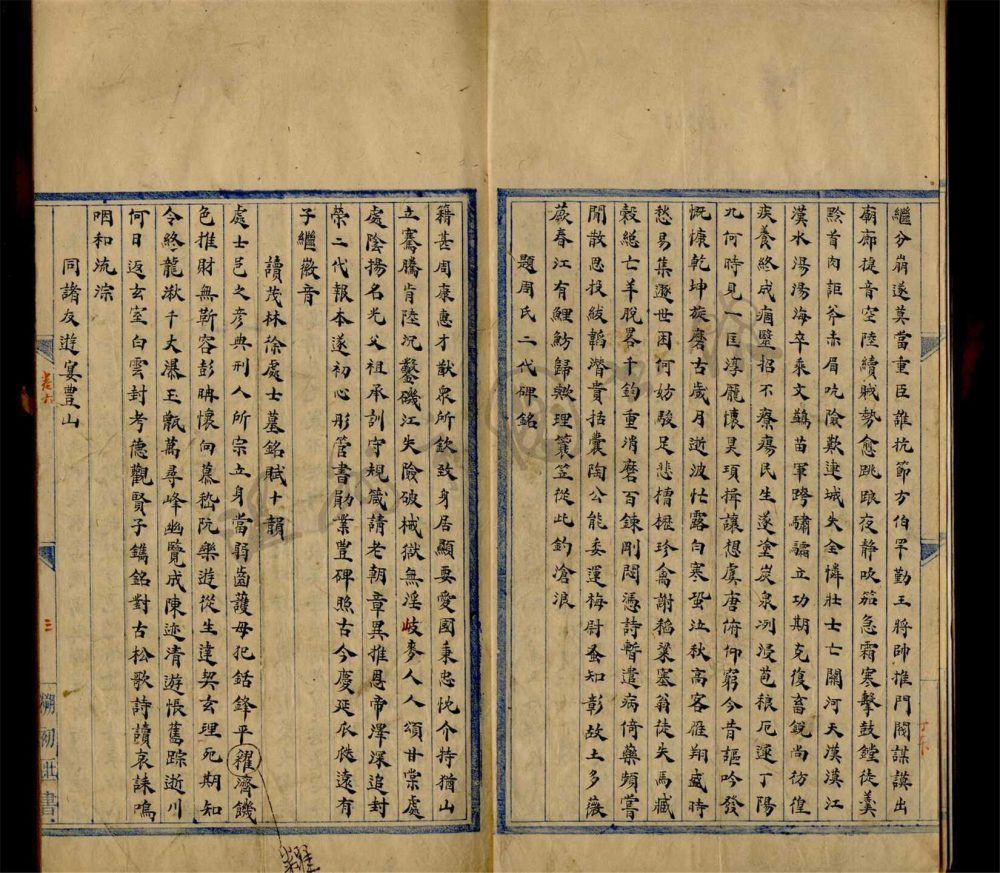 繼分崩遂莫當重臣誰抗節方伯罕勤王將帥推門閥謀謨出
廟廊援音空陸續賊勢愈跳踉夜靜吹笳急霜寒擊鼓鏜徒羹
黔首肉詎斧赤眉吭險歎連城失全憐壯士亡關河天漠漠江
漢水湯湯海卒乘文鷁苗軍跨驌驦立功期克復畜銳尚彷徨
疾養終成痼毉招不療瘍民生遂塗炭泉冽浸苞稂厄運丁陽
九何時見一匡淳龎懷昊頊揖讓想虞唐俯仰窮今昔謳吟發
慨慷乾坤旋磨古歲月逝波忙露白寒蛩泣秋高客雁翔盛時
愁易集遯世困何妨駿足悲槽櫪珍禽謝稻粱塞翁徒失馬臧
穀總亡羊脫畧千鈞重消磨百鍊剛悶憑詩暫遣病倚藥頻嘗
閒散思投紱韜潛貴括囊陶公能委運梅尉蚤知彰故土多薇
蕨春江有鯉魴歸歟理簑笠從此釣滄浪
題周氏二代碑銘
籍甚周康惠才猷衆所欽致身居顯要愛國秉忠忱介持猶山
立騫騰肯陸沉鑿磯江失險破械獄無淫岐麥人人頌甘棠處
處陰揚名光父祖承訓守規箴請老朝章異推恩帝澤深追封
榮二代報本遂初心彤管書勛業豊碑照古今慶延瓜瓞遠有
子繼徽音
讀茂林徐處士墓銘賦十韻
處士邑之彥典刑人所宗立身當弱齒護母犯銛鋒平糴濟饑
色推財無靳容彭聃懷向慕嵇阮樂遊從生達契玄理死期知
令終龍湫千丈瀑玉甑萬尋峰幽覽成陳迹清游悵舊踪逝川
何日返玄室白雲封考德觀賢子鐫銘對古松歌詩讀哀誄鳴
咽和流淙
同諸友遊宴豊山
卷六
三
糶